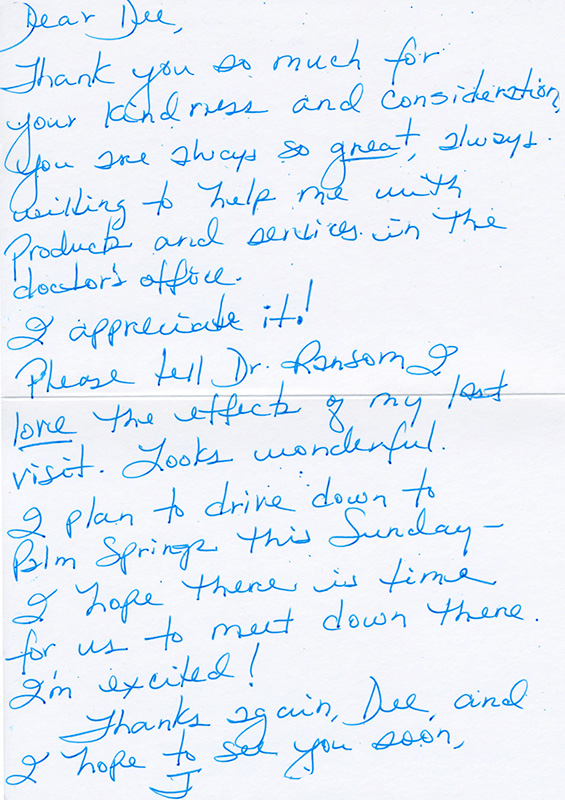 Dear Dee,
Thank you so much for
your kindness and consideration,
you are always so great, always.
willing to help me with
products and services in the
doctor's office.
I appreciate it!
Please tell Dr. Ransom I
love the effects of my last
visit. Looks wonderful.
I plan to drive down to
Palm Springs this Sunday –
I hope there is time
for us to meet down there.
I'm excited!
Thanks again, Dee, and
I hope to see you soon,
J